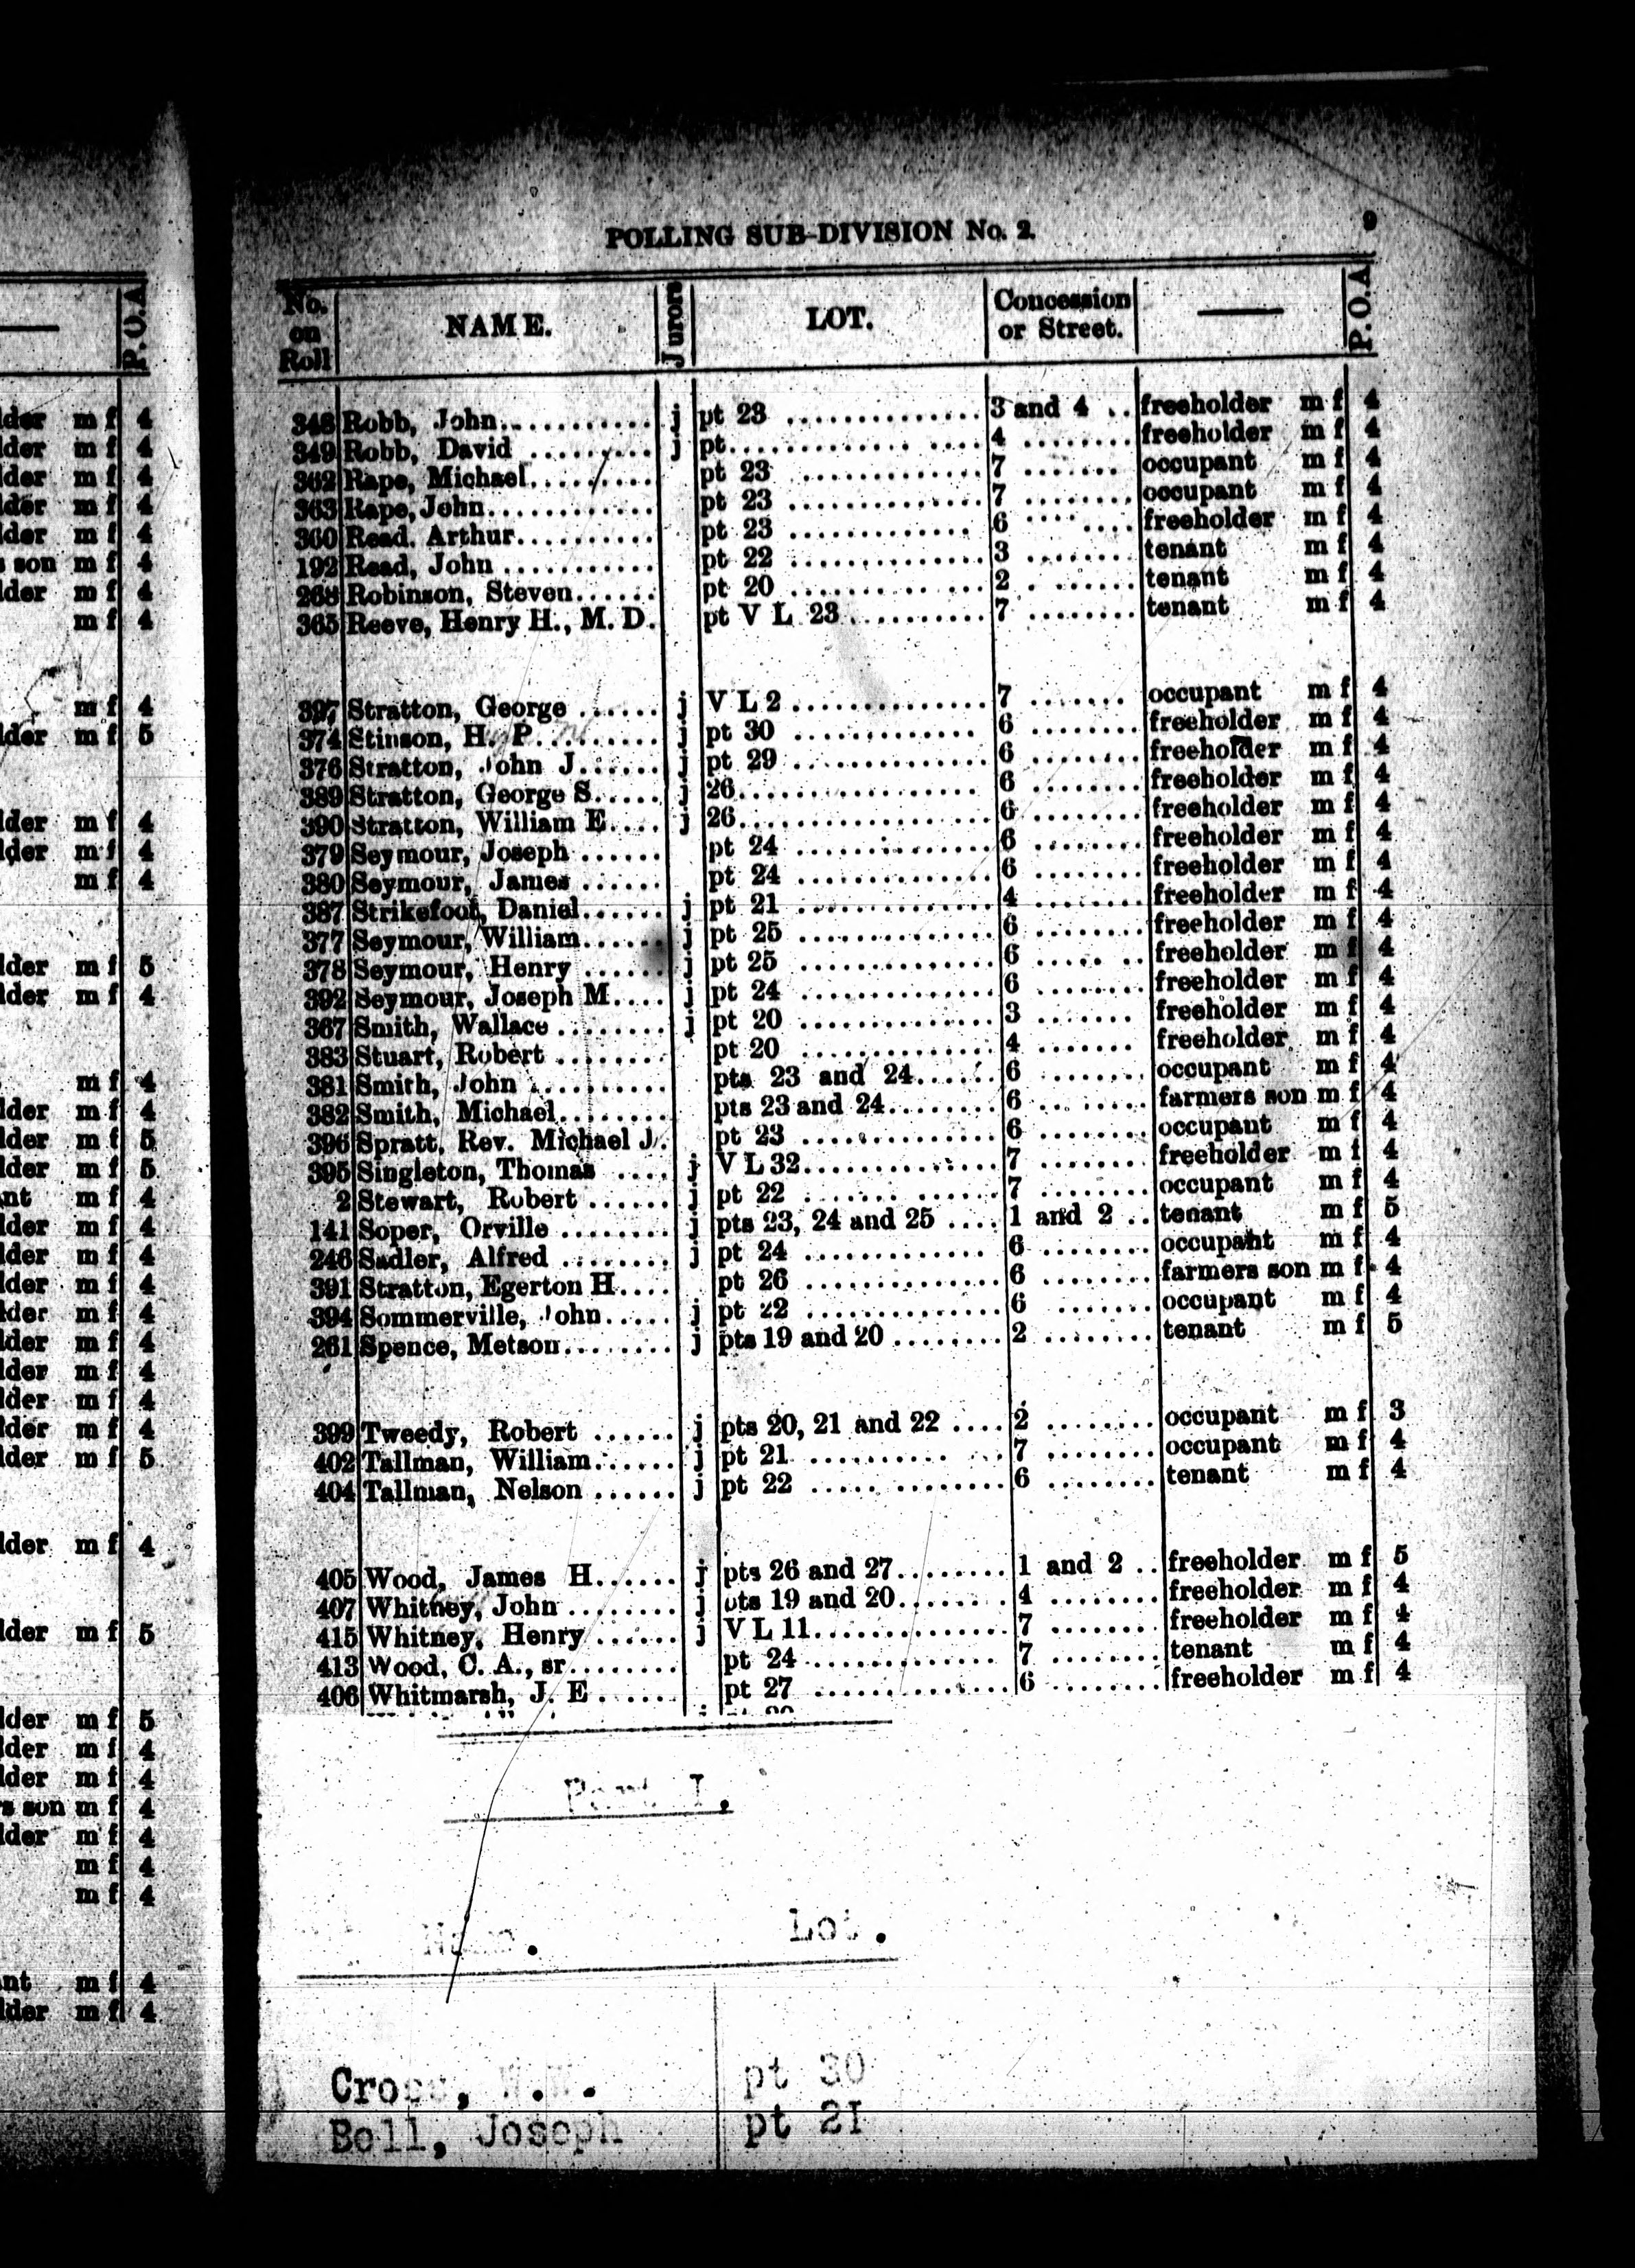 POLLING SUB-DIVISION No. 2. 9
No. on Roll NAME. Jurors LOT. Concession or Street. —— P.O.A
348 Robb, John........... j pt 23 .............. 3 and 4 .. freeholder m f 4
349 Robb, David ......... j pt................ 4 ........ freeholder m f 4
362 Rape, Michael......... pt 23 .............. 7 ....... occupant m f 4
363 Rape, John............ pt 23 .............. 7 ........ occupant m f 4
360 Read. Arthur.......... pt 23 ............. 6 ........ freeholder m f 4
192 Read, John ........... pt 22 .............. 3 ........ tenant m f 4
268 Robinson, Steven...... pt 20 ............. 2 ........ tenant m f 4
365 Reeve, Henry H., M. D. pt V L 23.......... 7 ........ tenant m f 4
397 Stratton, George ...... j V L 2 ............ 7 ....... occupant m f 4
374 Stinson, H. P......... j pt 30 ............. 6 ........ freeholder m f 4
376 Stratton, John J...... j pt 29 .............. 6 ........ freeholder m f 4
389 Stratton, George S..... j 26................. 6 ........ freeholder m f 4
390 Stratton, William E.... j 26.................. 6 ........ freeholder m f 4
379 Seymour, Joseph ...... pt 24 .............. 6 ........ freeholder m f 4
380 Seymour, James ...... pt 24 .............. 6 ........ freeholder m f 4
387 Strikefoot, Daniel...... j pt 21 .............. 4 ........ freeholder m f 4
377 Seymour, William...... j pt 25 .............. 6 ........ freeholder m f 4
378 Seymour, Henry ...... j pt 25 .............. 6 ..... .. freeholder m f 4
392 Seymour, Joseph M.... j pt 24 .............. 6 ........ freeholder m f 4
367 Smith, Wallace ........ j pt 20 .............. 3 ....... freeholder m f 4
383 Stuart, Robert ........ pt 20 .............. 4 ....... freeholder m f 4
381 Smith, John .......... pts 23 and 24...... 6 ....... occupant m f 4
382 Smith, Michael........ pts 23 and 24........ 6 ........ farmers son m f 4
396 Spratt, Rev. Michael J. pt 23 .............. 6 ........ occupant m f 4
395 Singleton, Thomas .... j V L 32.............. 7 ........ freeholder m f 4
2 Stewart, Robert ...... j pt 22 ....... ...... 7 ........ occupant m f 4
141 Soper, Orville ........ j pts 23, 24 and 25 .... 1 and 2 .. tenant m f 5
246 Sadler, Alfred ........ j pt 24 ............. 6 ........ occupant m f 4
391 Stratton, Egerton H.... pt 26 .............. 6 ........ farmers son m f 4
394 Sommerville, John..... j pt 22 .............. 6 ....... occupant m f 4
261 Spence, Metson........ j pts 19 and 20 ........ 2 ........ tenant m f 5
399 Tweedy, Robert ...... j pts 20, 21 and 22 .... 2 ........ occupant m f 3
402 Tallman, William...... j pt 21 .......... ... 7 ........ occupant m f 4
404 Tallman, Nelson ...... j pt 22 ..... ........ 6 ........ tenant m f 4
405 Wood, James H...... j pts 26 and 27........ 1 and 2 .. freeholder m f 5
407 Whitney, John ........ j pts 19 and 20........ 4 ........ freeholder m f 4
415 Whitney, Henry ...... j V L 11.............. 7 ........ freeholder m f 4
413 Wood, C. A., sr........ pt 24 .............. 7 ........ tenant m f 4
406 Whitmarsh, J. E ...... pt 27 .............. 6 ........ freeholder m f 4
Part I.
Name. Lot.
Cross, W.W. pt 30
Bell, Joseph pt 21